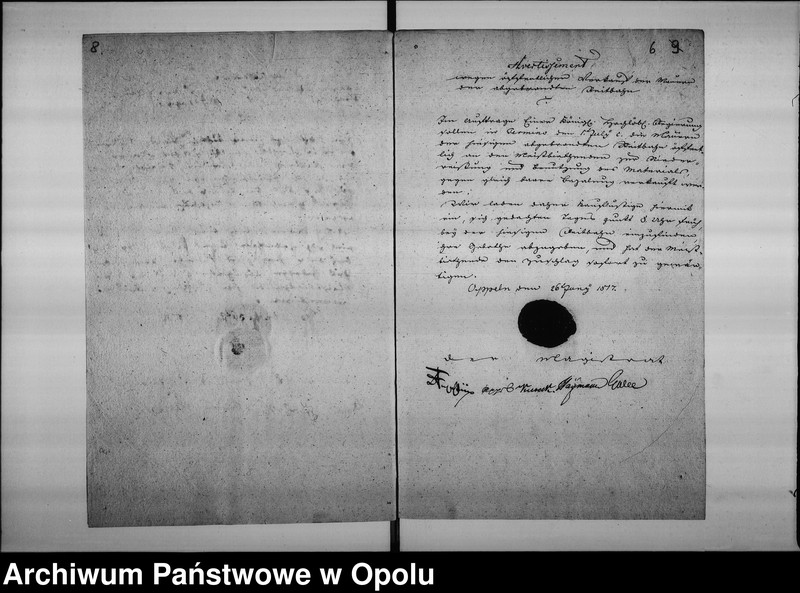 8.
6 9.
Avertissement
wegen öffentlichen Verkauf der Mauern
der abgebrannten Reitbahn
Im Auftrage Einer Königl. Hochlöbl. Regierung
sollen in Termino den 1t July c. die Mauern
der hiesigen abgebrannten Reitbahn öffent-
lich an den Meistbiethenden zur Nieder-
reißung und Benutzung des Materials,
gegen gleich baare Bezahlung verkauft wer-
den.
Wir laden daher Kauflustige hiermit
ein, sich gedachten Tages früh
bey der hiesigen Reitbahn einzufinden,
ihre Gebothe abzugeben, und hat der Meist-
biethende den Zuschlag sofort zu gewär-
tigen.
Oppeln den 26t Juny 1817.
Der Magistrat
Galle
Archiwum Państwowe w Opolu